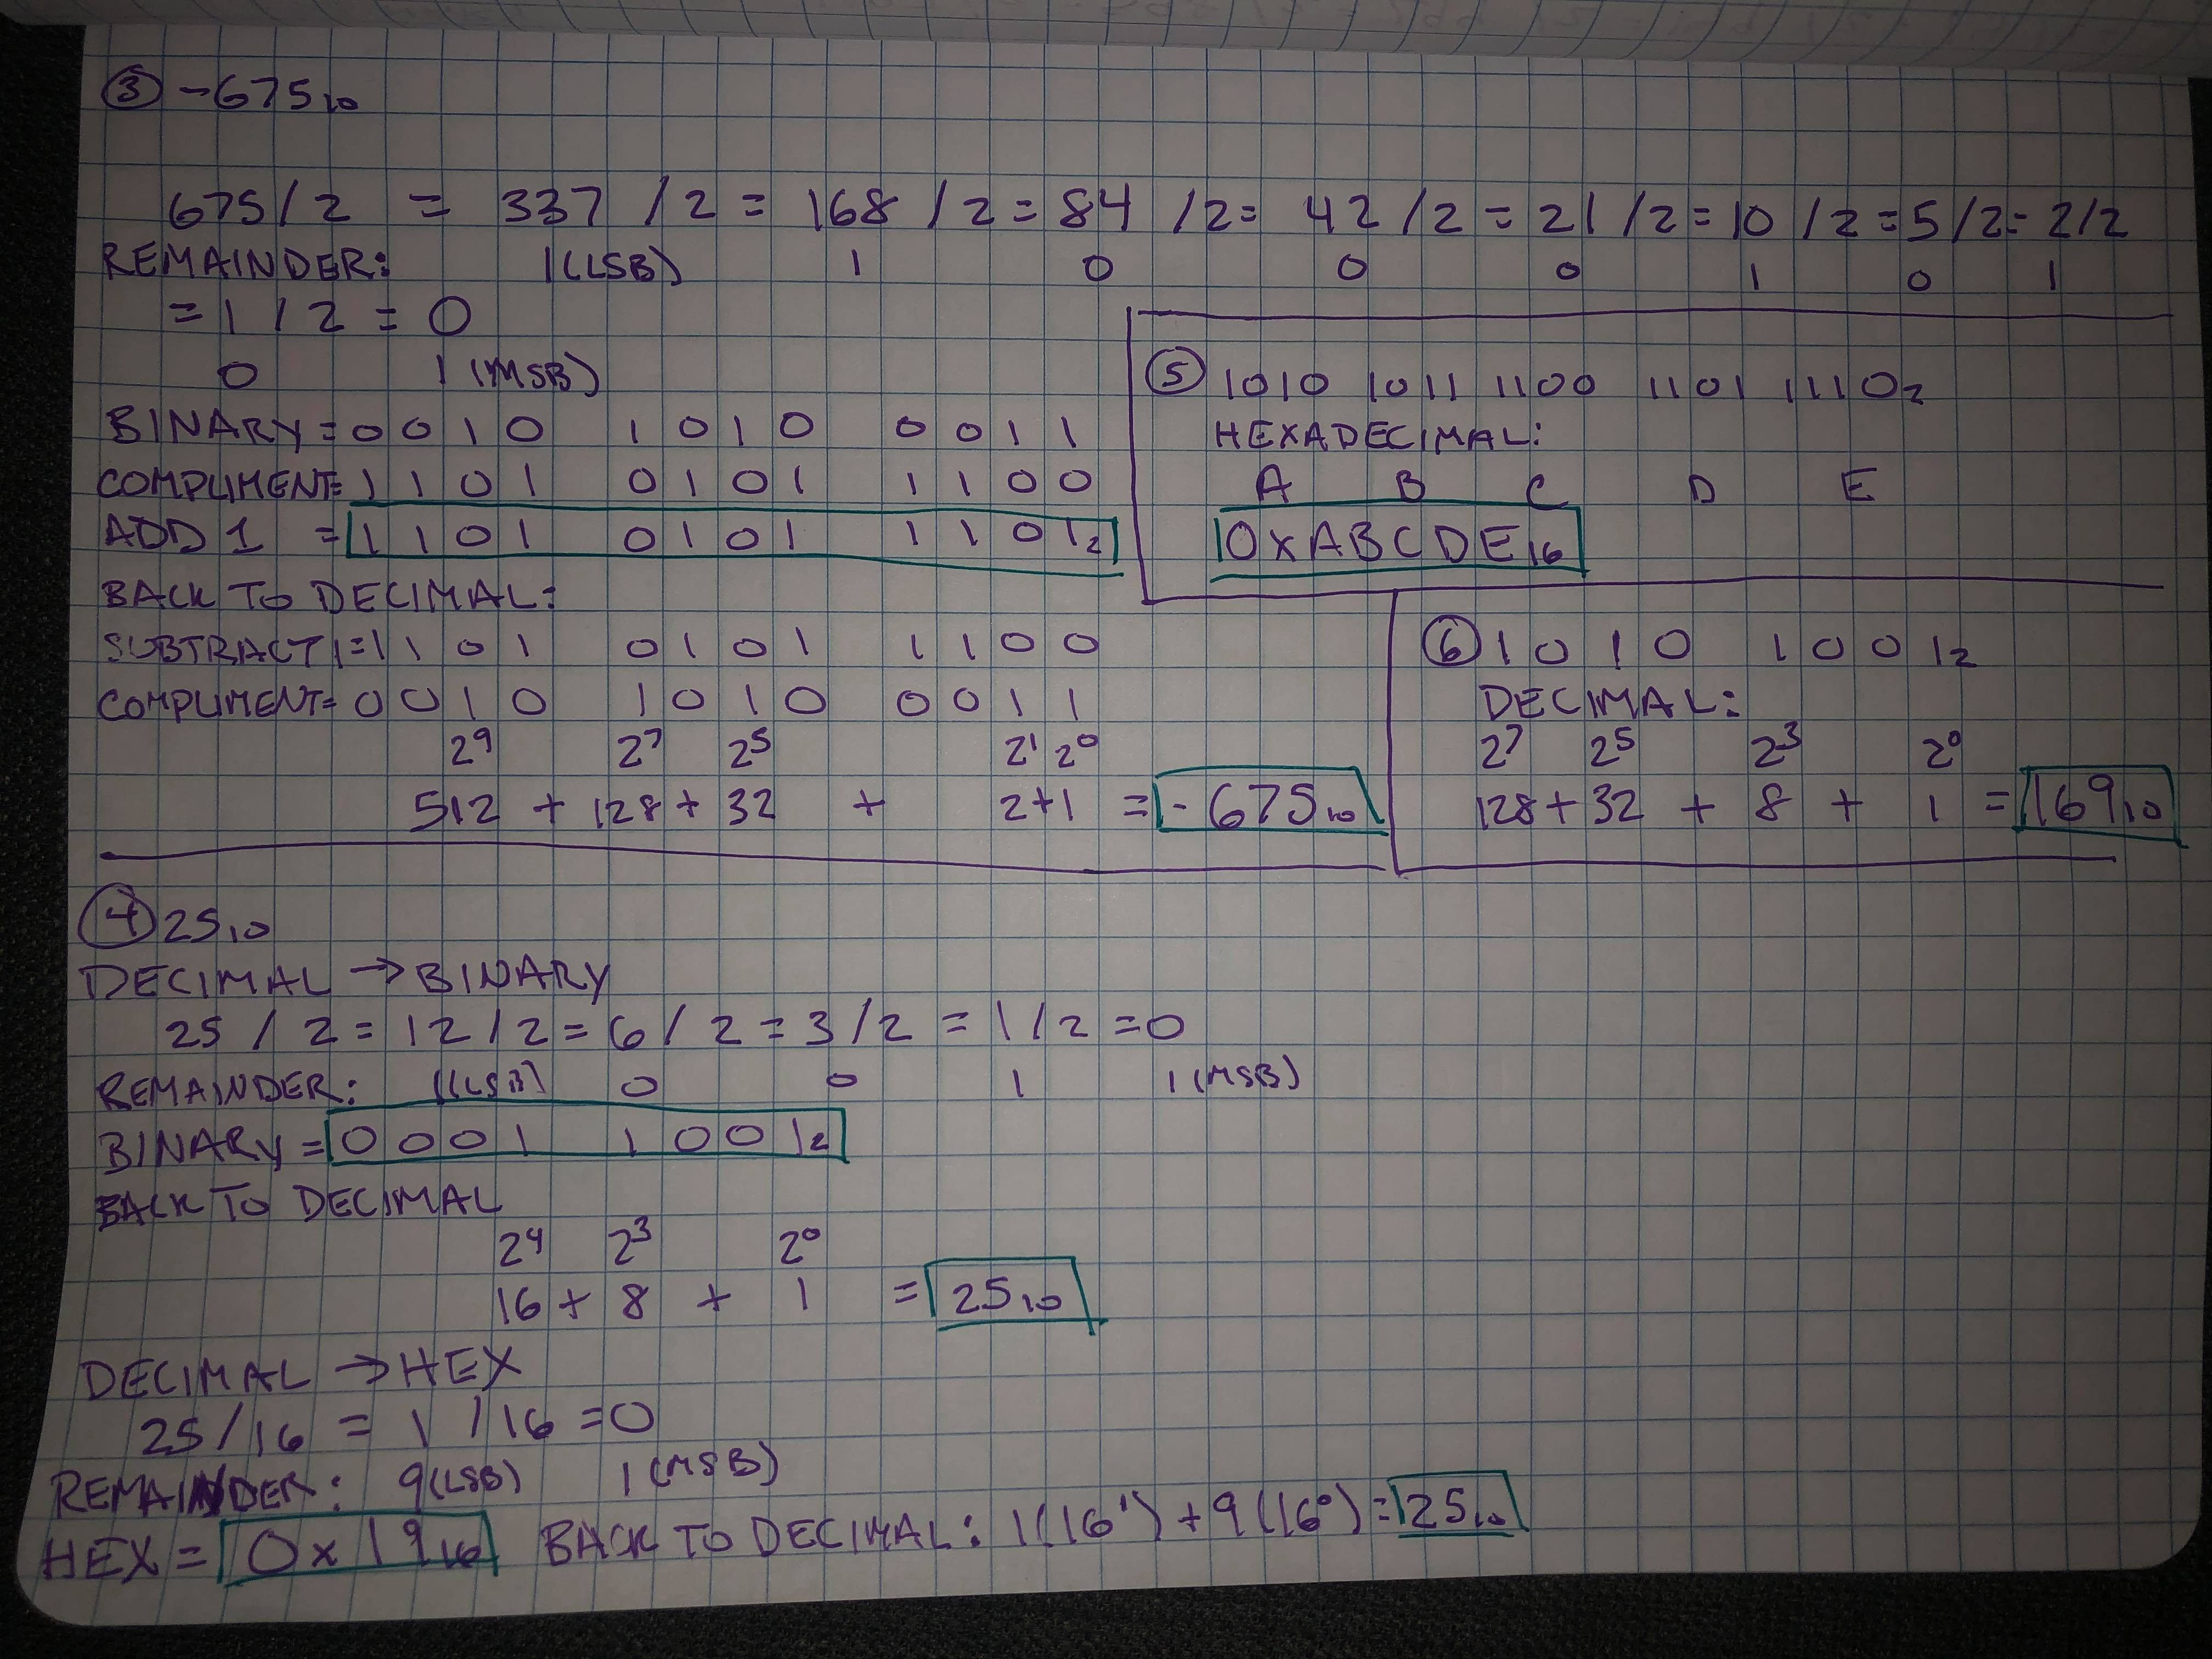 ③ -675₁₀
675/2 = 337 /2 = 168 /2 = 84 /2 = 42 /2 = 21 /2 = 10 /2 = 5 /2 = 2/2
REMAINDER: 1(LSB) 1 0 0 0 1 0 1
= 1 / 2 = 0
0 1 (MSB)
BINARY = 0 0 1 0 1 0 1 0 0 0 1 1
COMPLIMENT = 1 1 0 1 0 1 0 1 1 1 0 0
ADD 1 = 1 1 0 1 0 1 0 1 1 1 0 1₂
BACK TO DECIMAL:
SUBTRACT 1 = 1 1 0 1 0 1 0 1 1 1 0 0
COMPLIMENT = 0 0 1 0 1 0 1 0 0 0 1 1
2⁹ 2⁷ 2⁵ 2¹ 2⁰
512 + 128 + 32 + 2+1 = -675₁₀
⑤ 1010 1011 1100 1101 1110₂
HEXADECIMAL:
A B C D E
0xABCDE₁₆
⑥ 1 0 1 0 1 0 0 1₂
DECIMAL:
2⁷ 2⁵ 2³ 2⁰
128 + 32 + 8 + 1 = 169₁₀
④ 25₁₀
DECIMAL → BINARY
25 / 2 = 12 / 2 = 6 / 2 = 3 / 2 = 1 / 2 = 0
REMAINDER: 1(LSB) 0 0 1 1 (MSB)
BINARY = 0 0 0 1 1 0 0 1₂
BACK TO DECIMAL
2⁴ 2³ 2⁰
16 + 8 + 1 = 25₁₀
DECIMAL → HEX
25/16 = 1 / 16 = 0
REMAINDER: 9(LSB) 1 (MSB)
HEX = 0x19₁₆ BACK TO DECIMAL: 1(16¹) + 9(16⁰) = 25₁₀